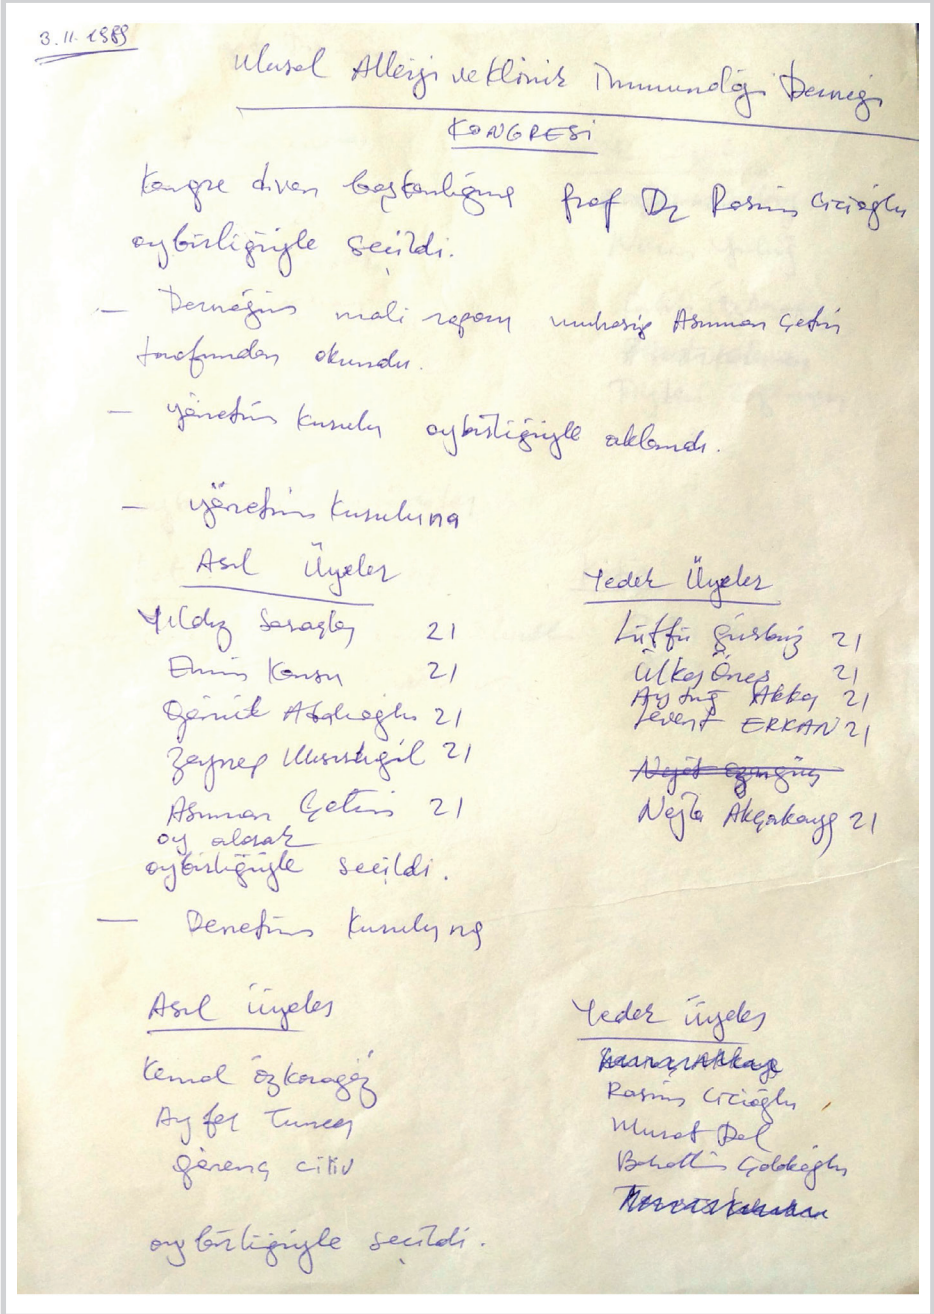 3.11.1989
Ulusal Allerji ve Klinik İmmunoloji Derneği
KONGRESİ
Kongre divan başkanlığına Prof Dr Rasim Cicioğlu
oybirliğiyle seçildi.
— Derneğin mali raporu muhasip Asuman Çetin
tarafından okundu.
— Yönetim Kurulu oybirliğiyle aklandı.
— Yönetim Kuruluna
Asıl Üyeler
Yıldız Saraçlar 21
Emin Kansu 21
Gönül Abalıoğlu 21
Zeynep Mısırlıgil 21
Asuman Çetin 21
oy alarak
oybirliğiyle seçildi.
Yedek Üyeler
Lütfü Gürbüz 21
Ülker Öneş 21
Aytuğ Akka 21
Levent ERKAN 21
Nejla Akçakaya 21
— Denetim Kuruluna
Asıl Üyeler
Kemal Özkaragöz
Ayfer Tuncer
Yedek Üyeler
Rasim Cicioğlu
Murat Dal
oybirliğiyle seçildi.